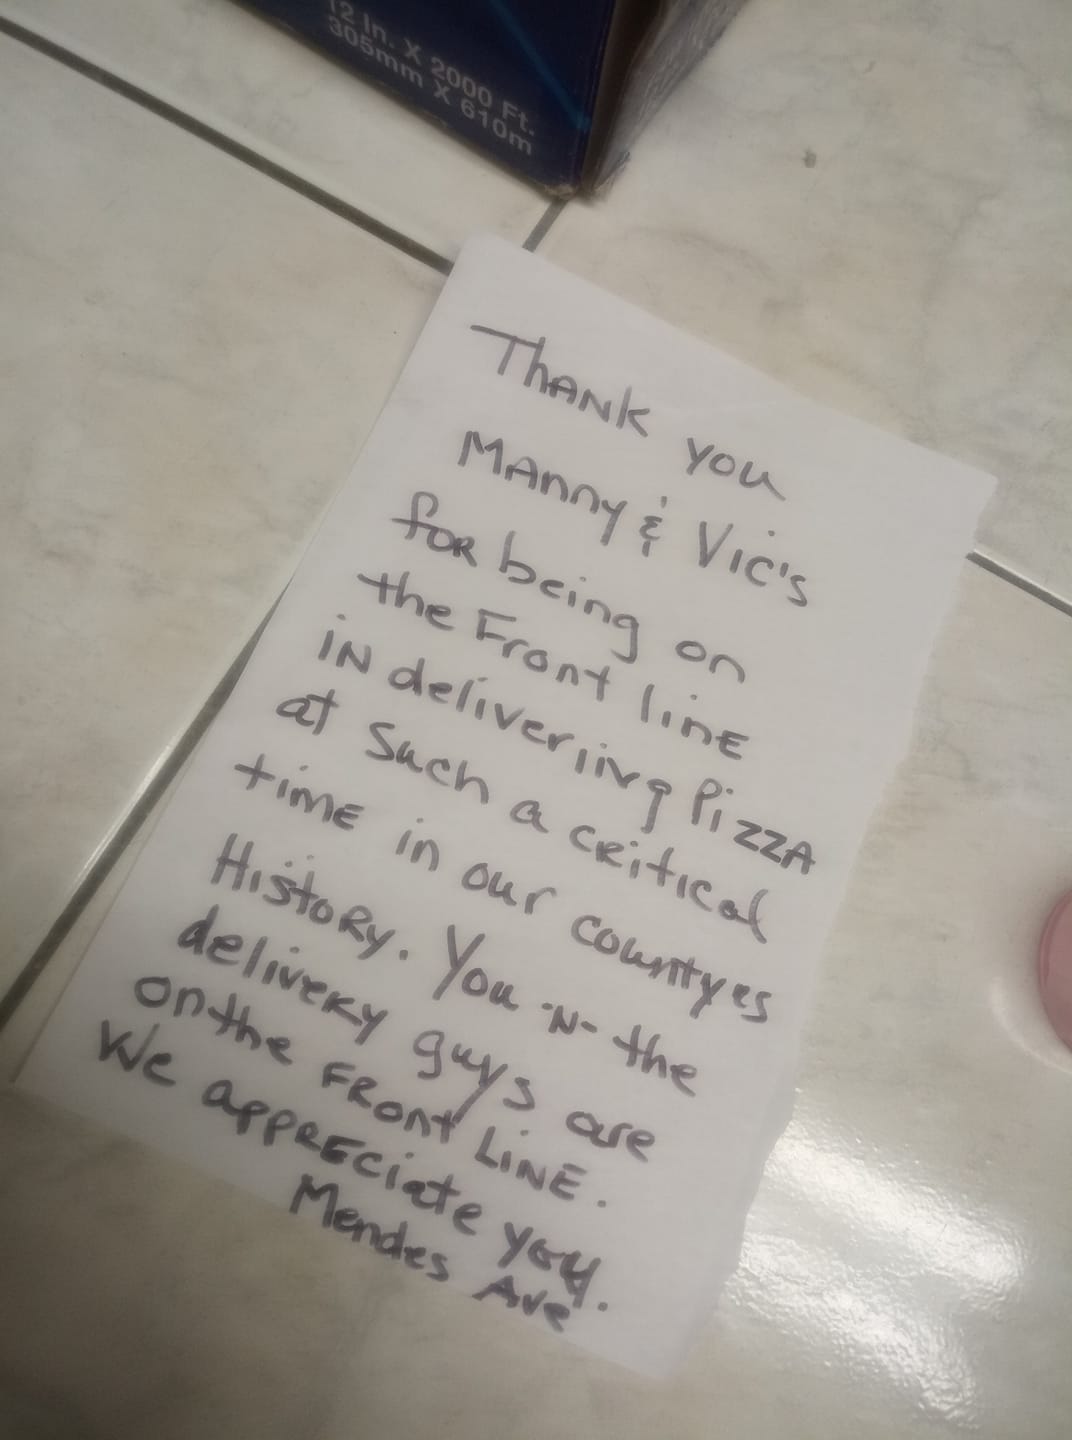 12 In. X 2000 Ft.
305mm X 610m
Thank you
Manny & Vic's
for being on
the Front line
in deliveriing Pizza
at such a critical
time in our countyes
History. You -N- the
delivery guys are
on the FRont LiNE.
We appreciate you.
Mendes Ave